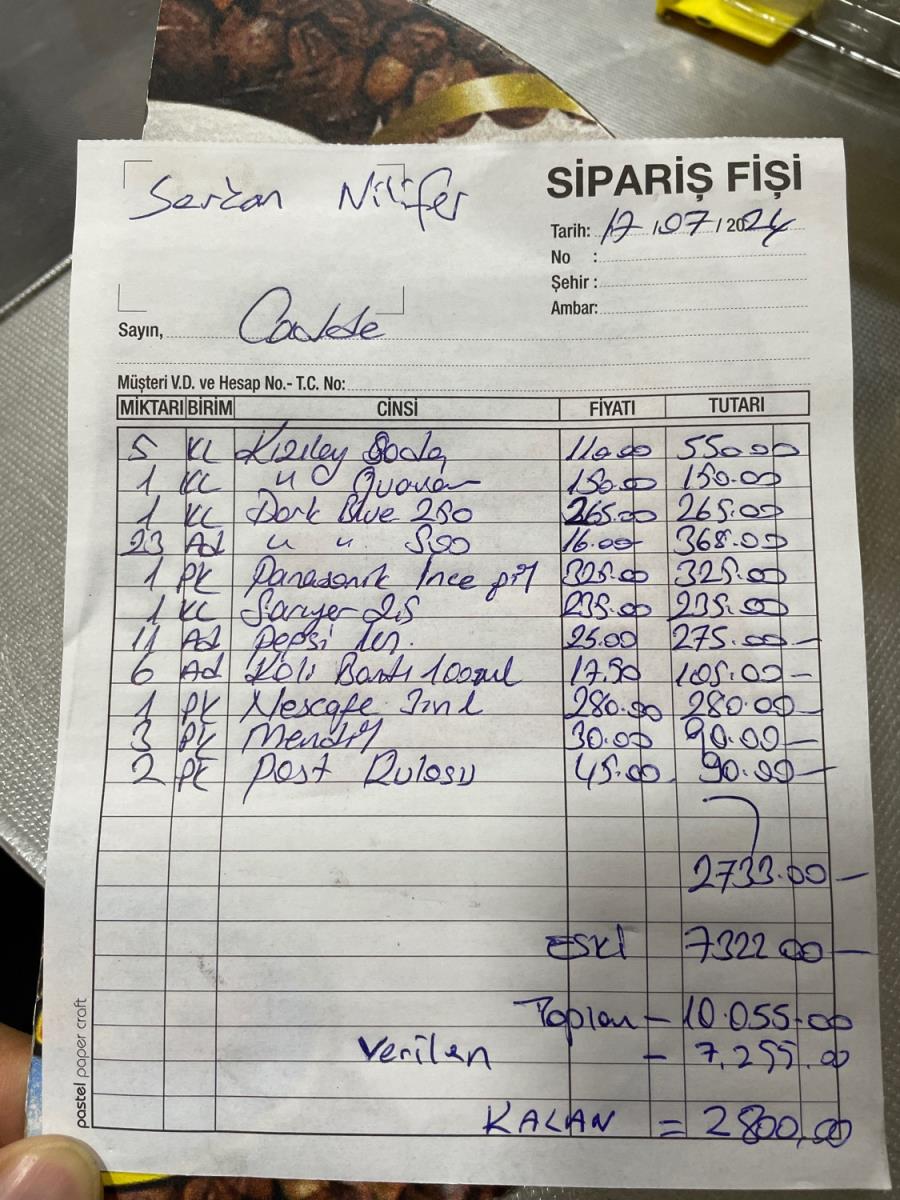 Serkan Nilüfer
SİPARİŞ FİŞİ
Tarih: 17/07/2024
No :
Şehir :
Ambar:
Sayın, Cadde
Müşteri V.D. ve Hesap No.- T.C. No:
MİKTARI BİRİM CİNSİ FİYATI TUTARI
5 KL Kızılay Soda 110.00 550.00
1 KL " 150.00 150.00
1 KL Dark Blue 250 265.00 265.00
23 Ad " " 500 16.00 368.00
1 PK Panasonik İnce pil 325.00 325.00
1 KL Sarıyer 2,5 235.00 235.00
11 Ad Pepsi 25.00 275.00
6 Ad Koli Bantı 17.50 105.00
1 PK Nescafe 280.00 280.00
3 PK Mendil 30.00 90.00
2 PK Post Rulosu 45.00 90.00
2733.00
ESKİ 7322.00
Toplan - 10.055.00
Verilen - 7.255.00
KALAN = 2800,00
pastel paper craft